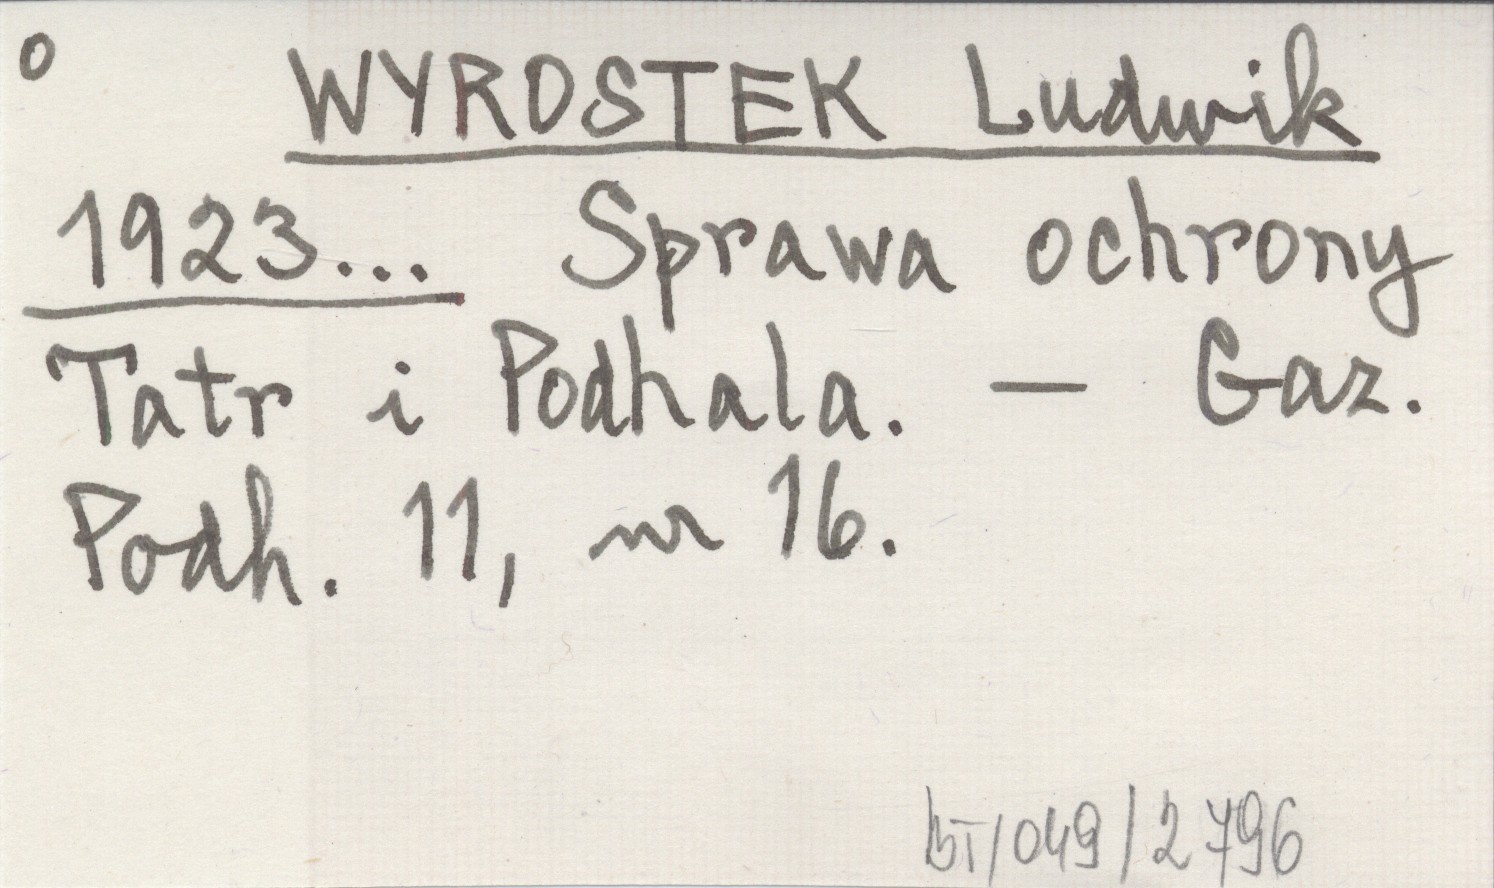 o
WYROSTEK Ludwik
1923... Sprawa ochrony
Tatr i Podhala. — Gaz.
Podh. 11, nr 16.
BT/049/2796